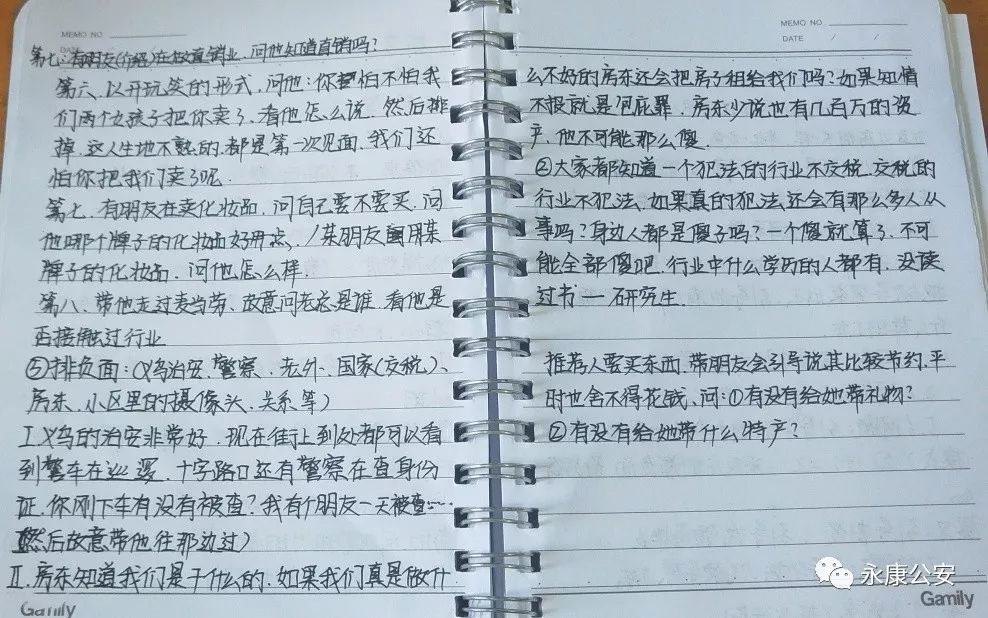 MEMO NO
DATE
第七:有朋友(介绍)在做直销业,问他知道直销吗?
第六、以开玩笑的形式,问他:你怕不怕我
们两个女孩子把你卖了.看他怎么说.然后排
掉.这人生地不熟的.都是第一次见面.我们还
怕你把我们卖了呢.
第七、有朋友在卖化妆品.问自己要不要买.问
他哪个牌子的化妆品好用点、/某朋友用某
牌子的化妆品.问他怎么样.
第八、带他走过麦当劳、故意问老总是谁.看他是
否接触过行业
⑤排负面:(义乌治安.警察.老外.国家(交税)、
房东.小区里的摄像头.关系等)
I.义乌的治安非常好.现在街上到处都可以看
到警车在巡逻.十字路口还有警察在查身份
证.你刚下车有没有被查?我有个朋友一天被查……
然后故意带他往那边过)
II.房东知道我们是干什么的.如果我们真是做什
Gamily
MEMO NO
DATE / /
么不好的房东还会把房子租给我们吗?如果知情
不报就是包庇罪.房东少说也有几百万的资
产.他不可能那么傻.
②大家都知道一个犯法的行业不交税.交税的
行业不犯法.如果真的犯法还会有那么多人从
事吗?身边人都是傻子吗?一个傻就算了.不可
能全部傻吧.行业中什么学历的人都有.没读
过书——研究生.
推荐人要买东西.带朋友会引导说其比较节约.平
时也舍不得花钱.问:①有没有给她带礼物?
②有没有给她带什么特产?
永康公安
Gamily